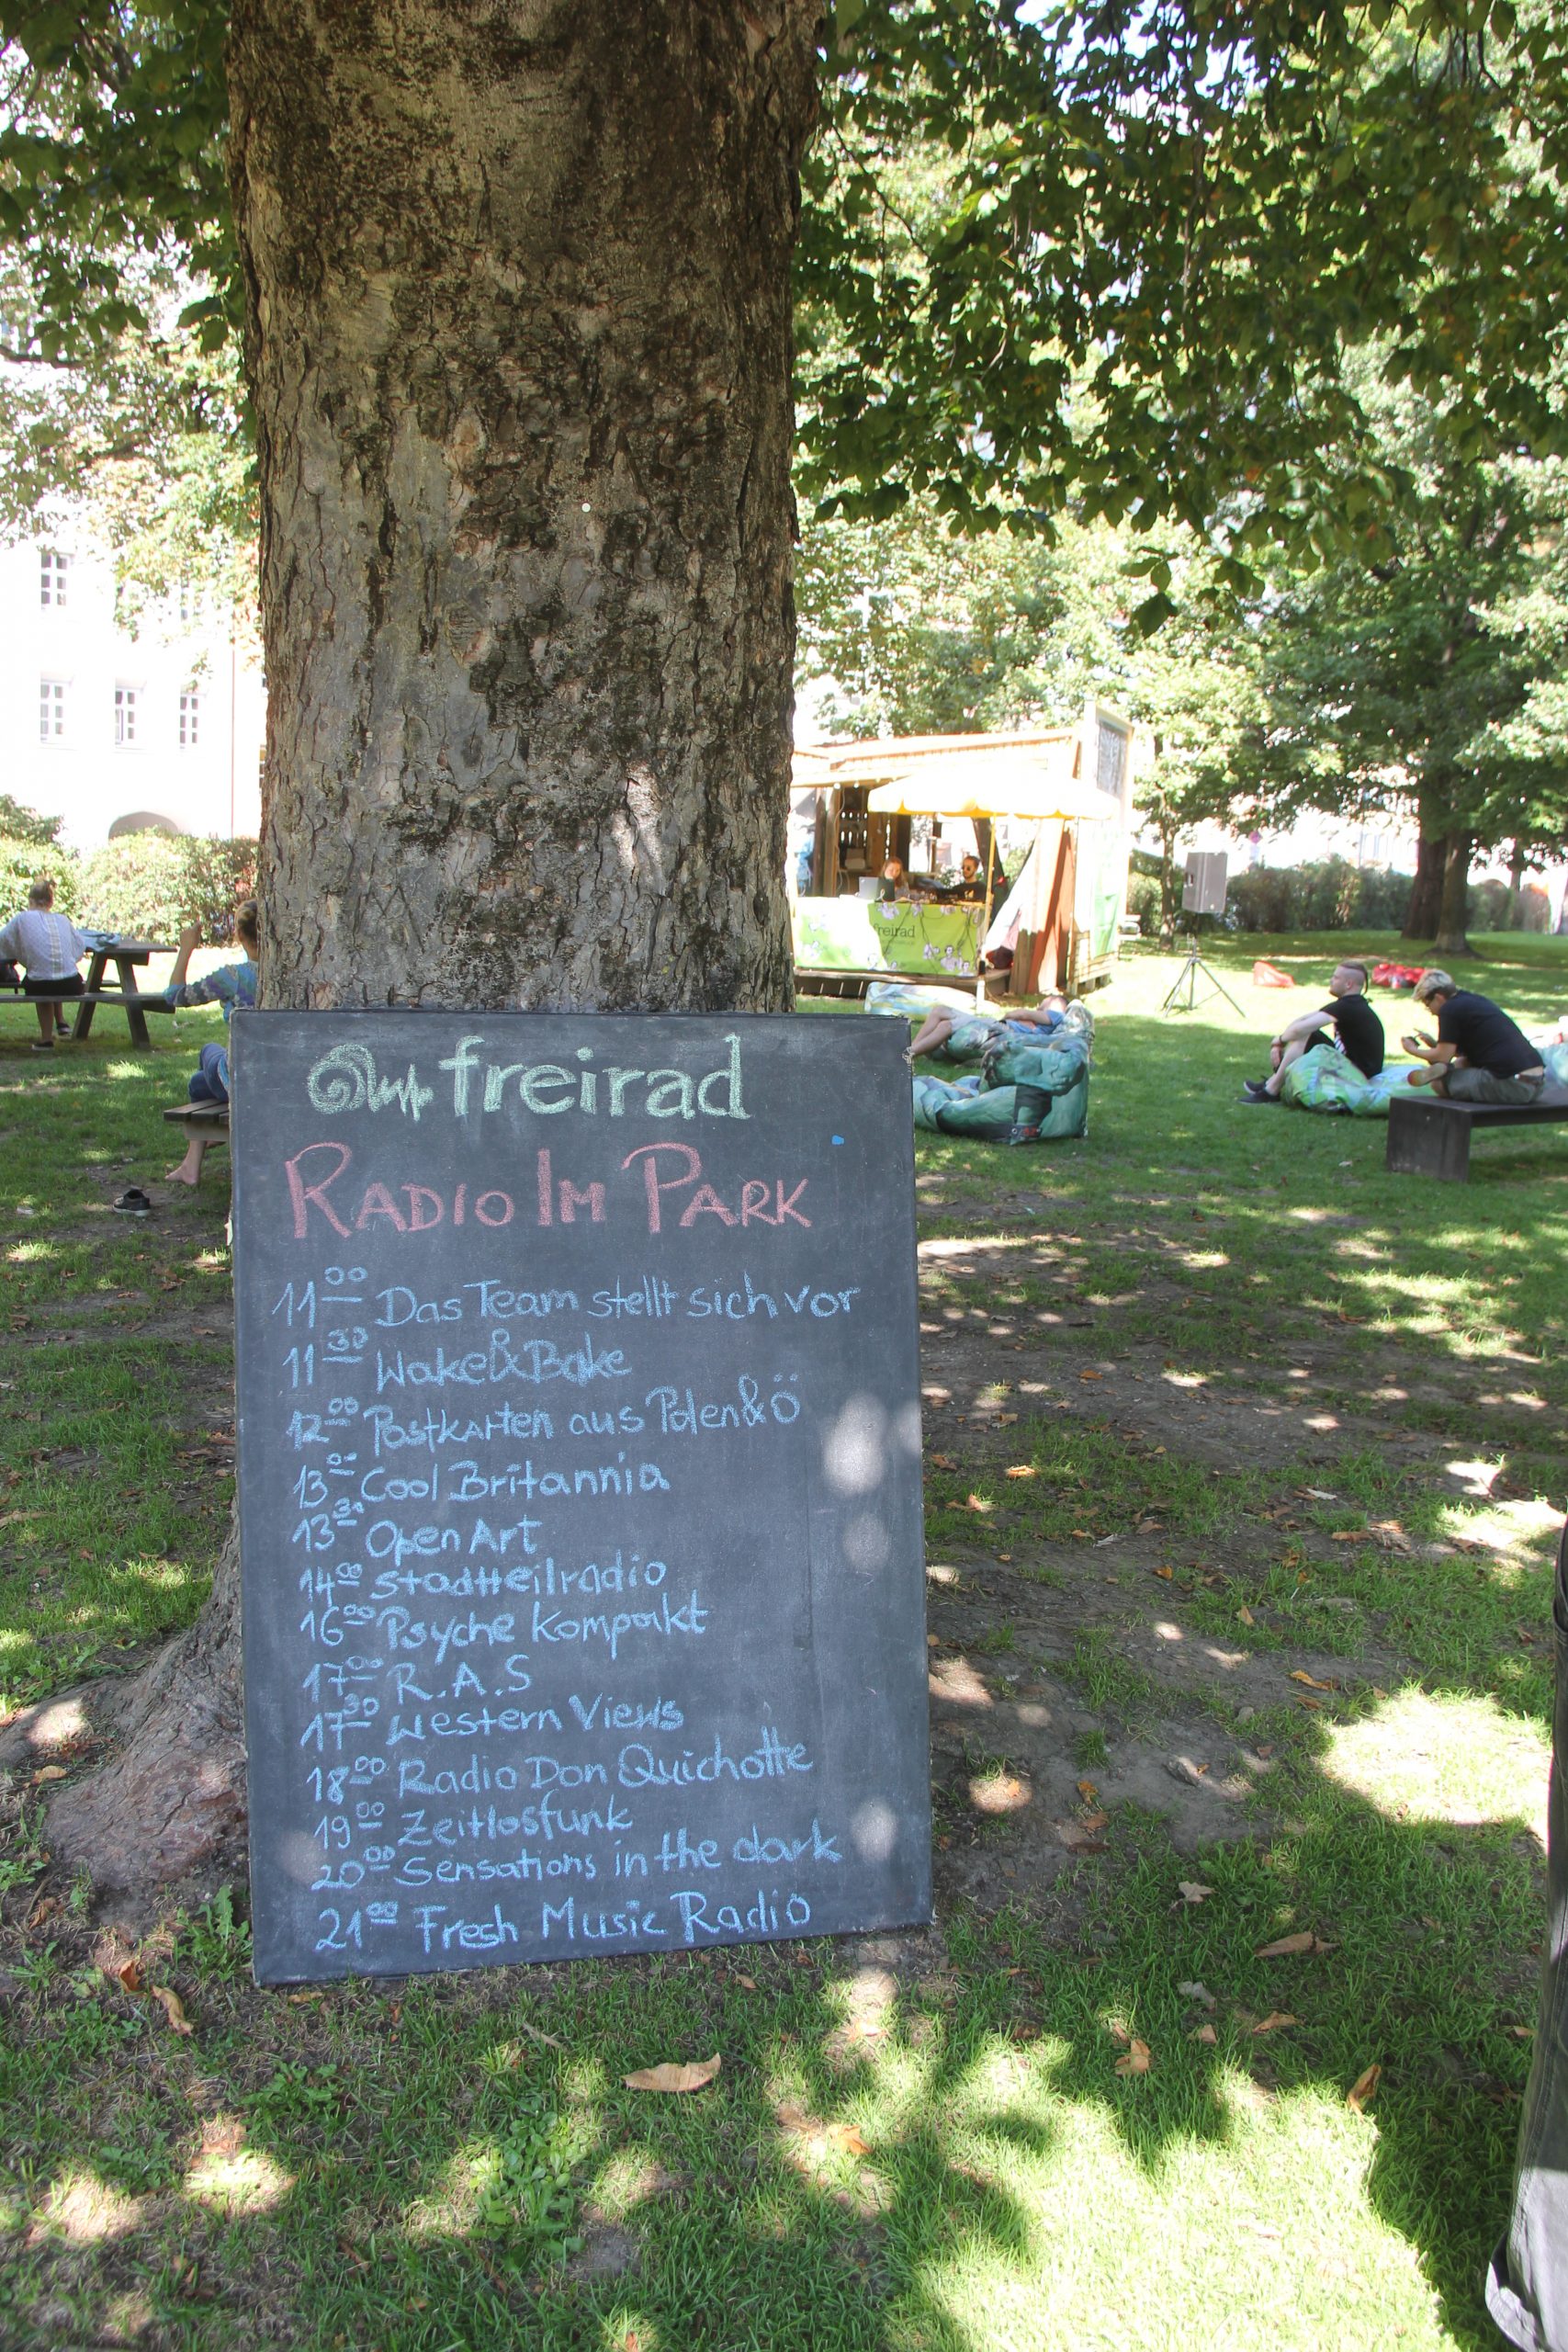 freirad
freirad
RADIO IM PARK
11⁰⁰ Das Team stellt sich vor
11³⁰ Wake&Bake
12⁰⁰ Postkarten aus Polen&Ö
13⁰⁰ Cool Britannia
13³⁰ Open Art
14⁰⁰ Stadtteilradio
16⁰⁰ Psyche Kompakt
17⁰⁰ R.A.S
17³⁰ Western Views
18⁰⁰ Radio Don Quichotte
19⁰⁰ Zeitlosfunk
20⁰⁰ Sensations in the dark
21⁰⁰ Fresh Music Radio